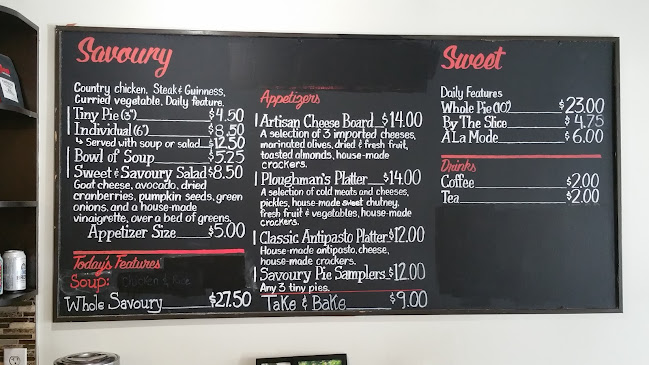 Savoury
Country chicken, Steak & Guinness,
Curried vegetable, Daily feature.
Tiny Pie (3") $4.50
Individual (6") $8.50
↳ Served with soup or salad $12.50
Bowl of Soup $5.25
Sweet & Savoury Salad $8.50
Goat cheese, avocado, dried
cranberries, pumpkin seeds, green
onions, and a house-made
vinaigrette, over a bed of greens.
Appetizer Size $5.00
Today's Features
Soup: Chicken & Rice
Whole Savoury $27.50
Appetizers
Artisan Cheese Board $14.00
A selection of 3 imported cheeses,
marinated olives, dried & fresh fruit,
toasted almonds, house-made
crackers.
Ploughman's Platter $14.00
A selection of cold meats and cheeses,
pickles, house-made sweet chutney,
fresh fruit & vegetables, house-made
crackers.
Classic Antipasto Platter $12.00
House-made antipasto, cheese,
house-made crackers.
Savoury Pie Samplers $12.00
Any 3 tiny pies.
Take & Bake $9.00
Sweet
Daily Features
Whole Pie (10") $23.00
By The Slice $4.75
À La Mode $6.00
Drinks
Coffee $2.00
Tea $2.00